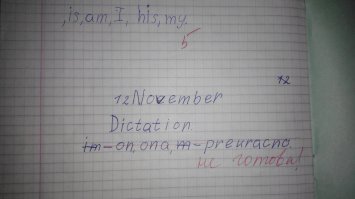 ,is,am,I, his,my.
5
12
12 November
Dictation.
im-on,ona, m-prekracno.
не готова!